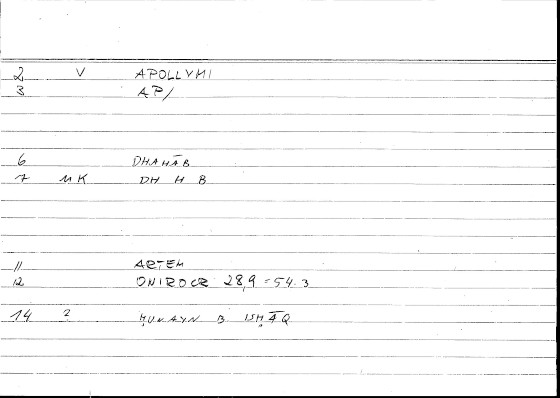 2 V APOLLYMI
3 AP/
6 DHAHĀB
7 MK DH H B
11 ARTEM
12 ONIROCR 28,9 = 54.3
14 2 ḤUNAYN B ISḤĀQ